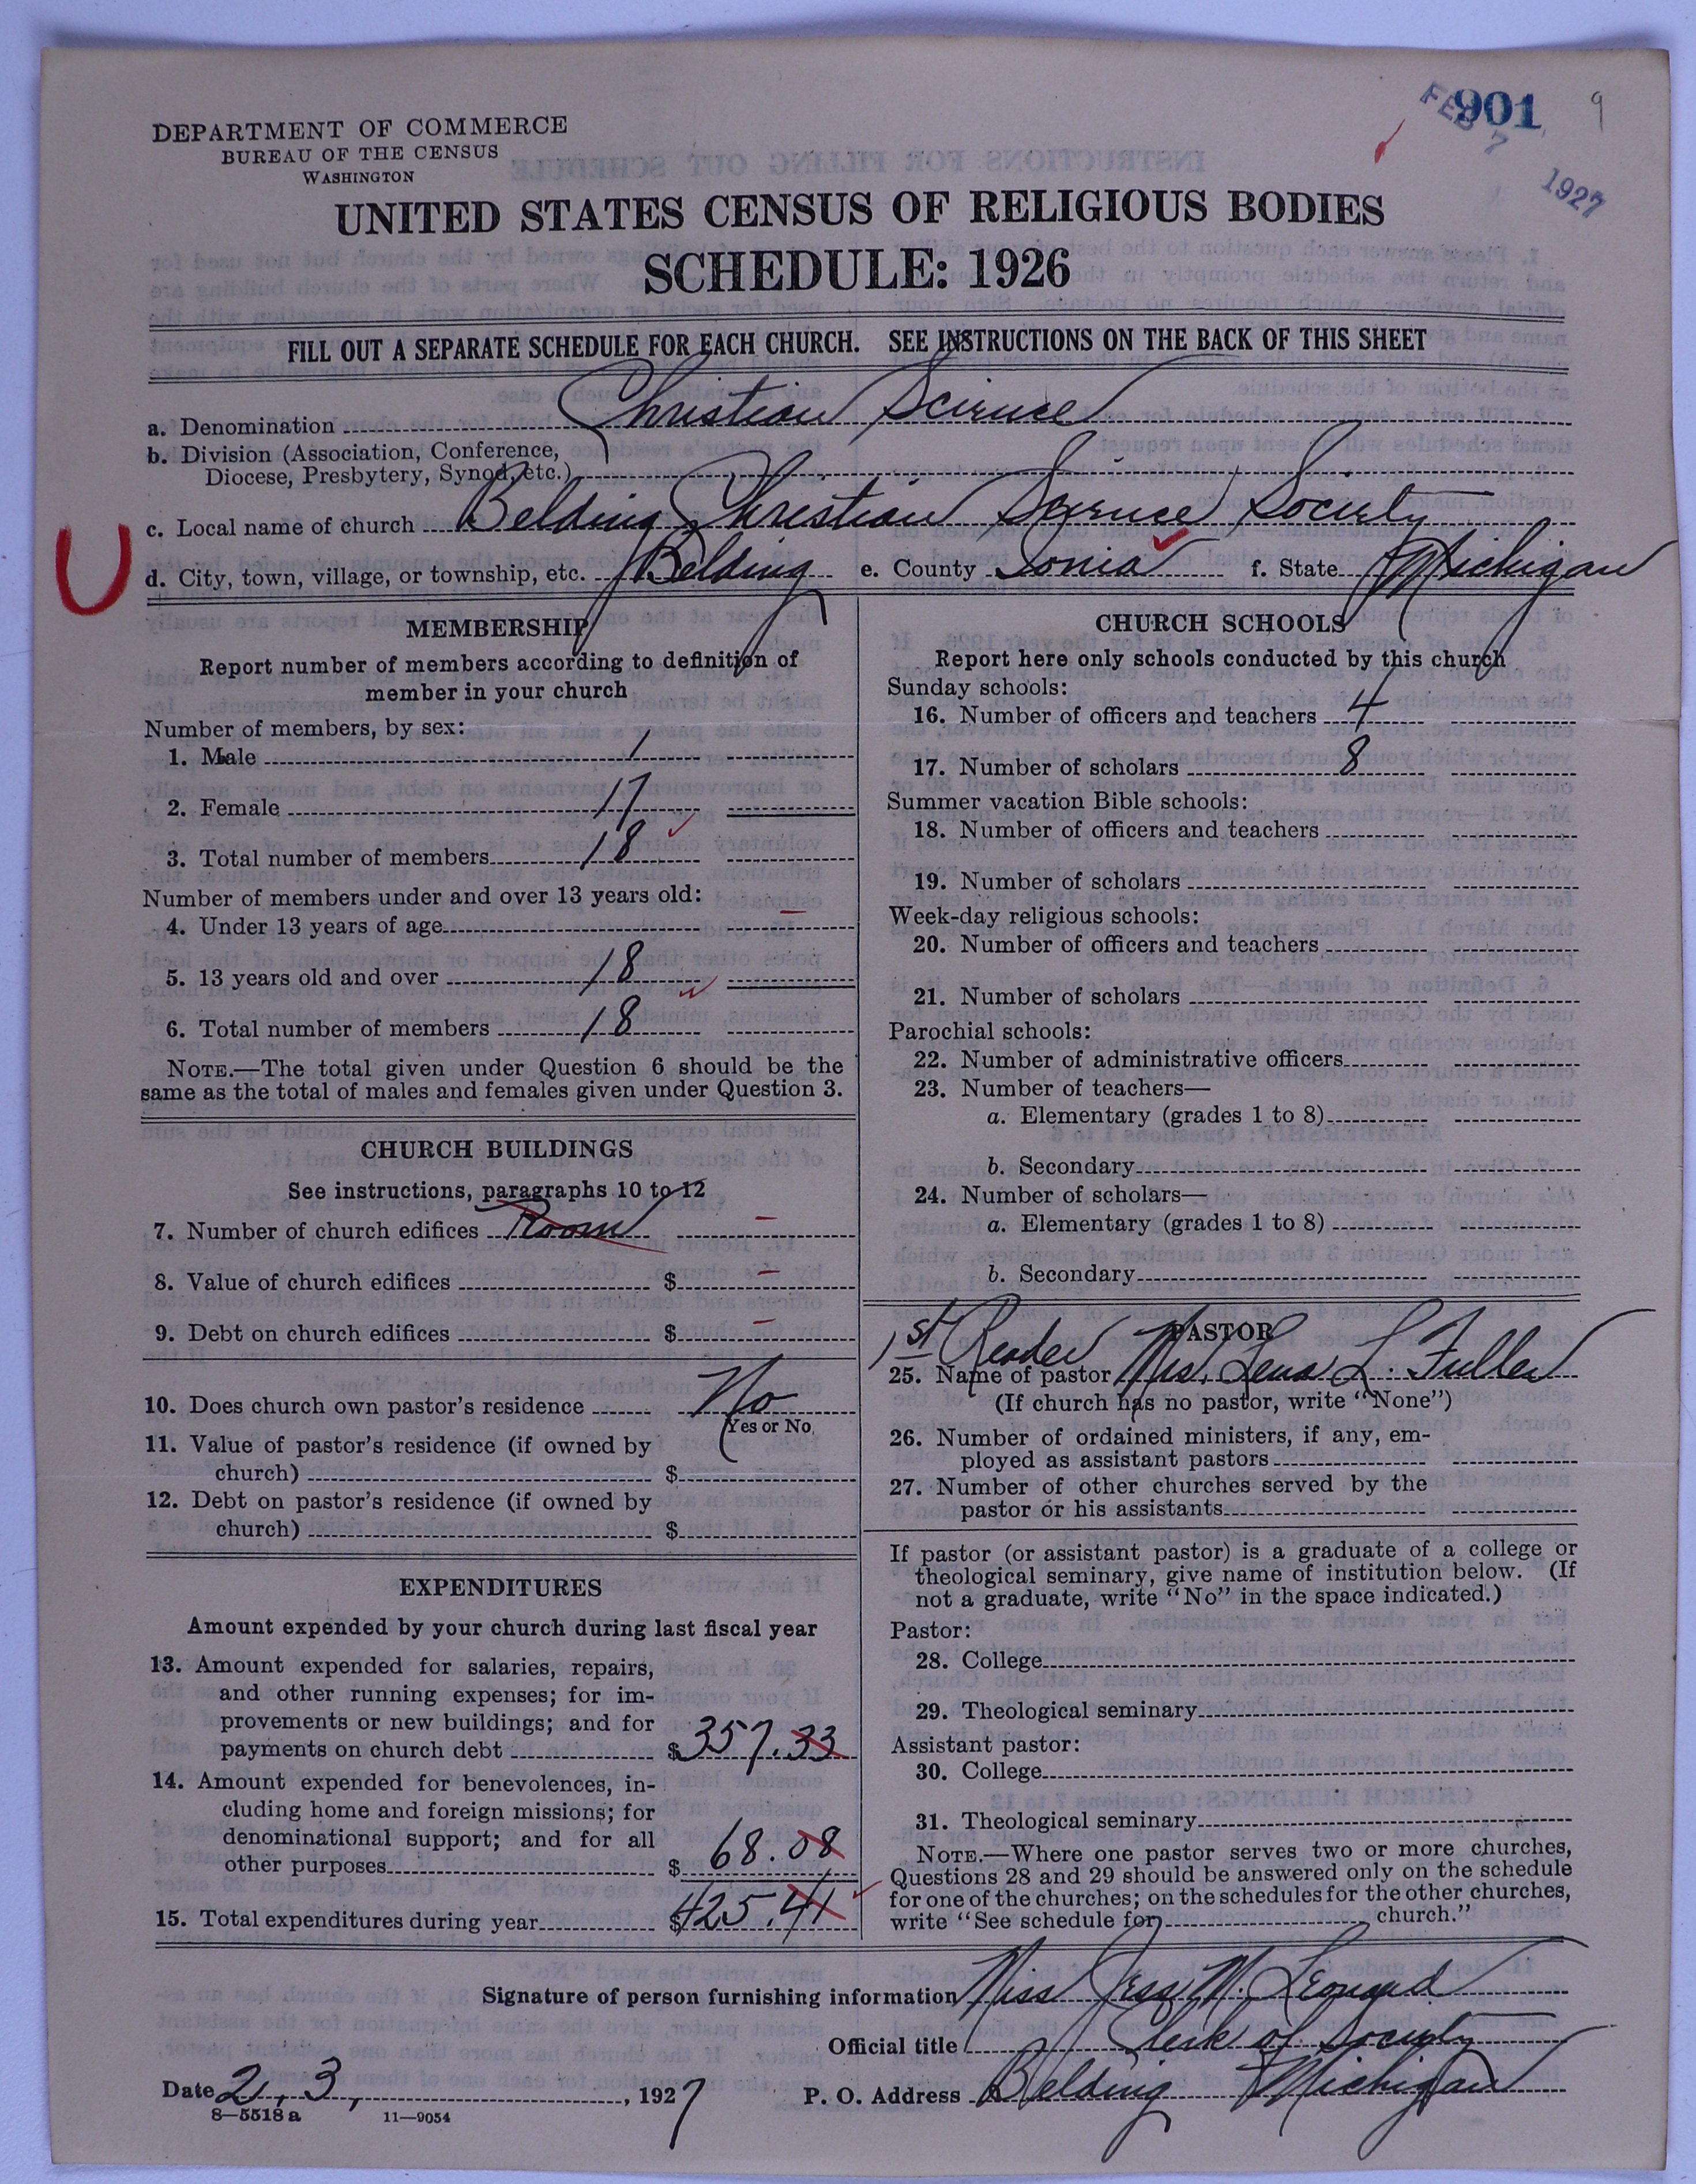 901
9
FEB 7 1927
DEPARTMENT OF COMMERCE
BUREAU OF THE CENSUS
WASHINGTON
UNITED STATES CENSUS OF RELIGIOUS BODIES
SCHEDULE: 1926
FILL OUT A SEPARATE SCHEDULE FOR EACH CHURCH. SEE INSTRUCTIONS ON THE BACK OF THIS SHEET
a. Denomination Christian Science
b. Division (Association, Conference,
Diocese, Presbytery, Synod, etc.)
c. Local name of church Belding Christian Science Society
U
d. City, town, village, or township, etc. Belding e. County Ionia f. State Michigan
MEMBERSHIP
Report number of members according to definition of
member in your church
Number of members, by sex:
1. Male 1
2. Female 17
3. Total number of members 18
Number of members under and over 13 years old:
4. Under 13 years of age –
5. 13 years old and over 18
6. Total number of members 18
NOTE.—The total given under Question 6 should be the
same as the total of males and females given under Question 3.
CHURCH BUILDINGS
See instructions, paragraphs 10 to 12
7. Number of church edifices Room –
8. Value of church edifices $ –
9. Debt on church edifices $ –
10. Does church own pastor's residence No
Yes or No
11. Value of pastor's residence (if owned by
church) $
12. Debt on pastor's residence (if owned by
church) $
EXPENDITURES
Amount expended by your church during last fiscal year
13. Amount expended for salaries, repairs,
and other running expenses; for im-
provements or new buildings; and for
payments on church debt $357.33
14. Amount expended for benevolences, in-
cluding home and foreign missions; for
denominational support; and for all
other purposes $ 68.08
15. Total expenditures during year $425.41
CHURCH SCHOOLS
Report here only schools conducted by this church
Sunday schools:
16. Number of officers and teachers 4
17. Number of scholars 8
Summer vacation Bible schools:
18. Number of officers and teachers
19. Number of scholars
Week-day religious schools:
20. Number of officers and teachers
21. Number of scholars
Parochial schools:
22. Number of administrative officers
23. Number of teachers—
a. Elementary (grades 1 to 8)
b. Secondary
24. Number of scholars—
a. Elementary (grades 1 to 8)
b. Secondary
PASTOR
1st Reader
25. Name of pastor Mrs. Lena L. Fuller
(If church has no pastor, write "None")
26. Number of ordained ministers, if any, em-
ployed as assistant pastors
27. Number of other churches served by the
pastor or his assistants
If pastor (or assistant pastor) is a graduate of a college or
theological seminary, give name of institution below. (If
not a graduate, write "No" in the space indicated.)
Pastor:
28. College
29. Theological seminary
Assistant pastor:
30. College
31. Theological seminary
NOTE.—Where one pastor serves two or more churches,
Questions 28 and 29 should be answered only on the schedule
for one of the churches; on the schedules for the other churches,
write "See schedule for church."
Signature of person furnishing information Miss Jess M. Leonard
Official title Clerk of Society
Date 2, 3, , 1927 P. O. Address Belding Michigan
8—5518 a 11—9054